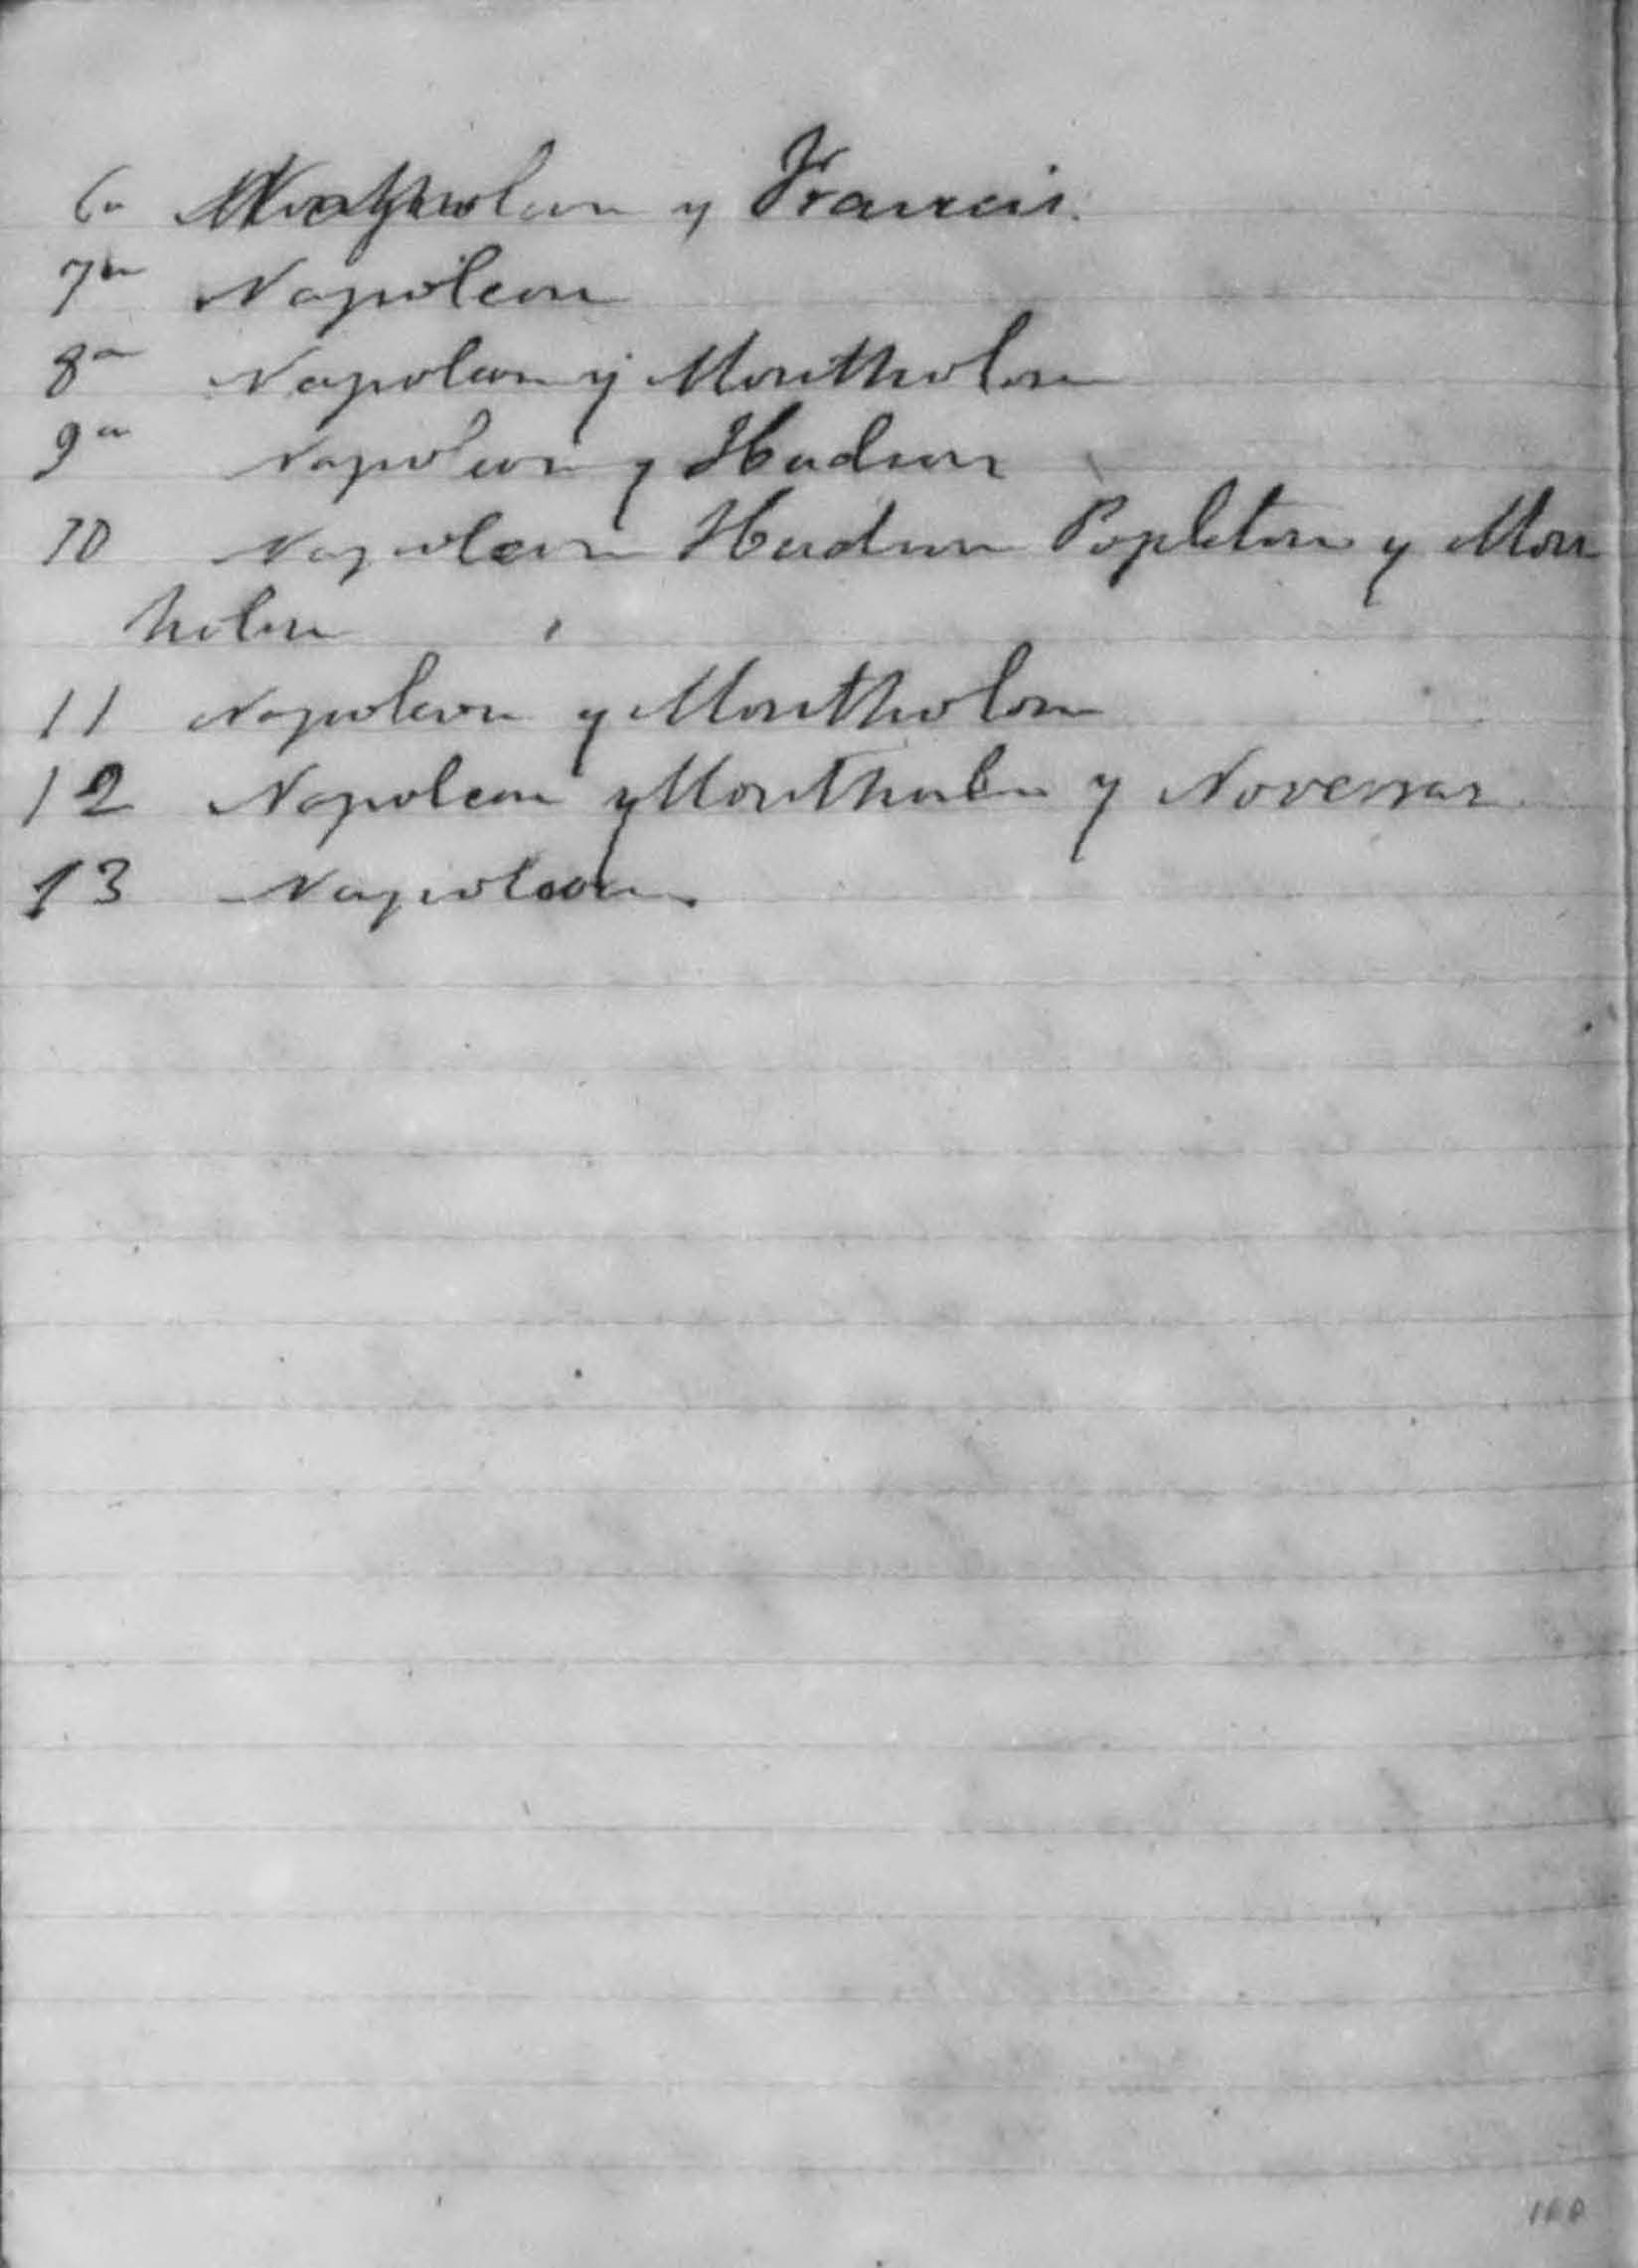 6a Montholon y Francis.
7a Napoleon
8a Napoleon y Montholon
9a Napoleon y Hudson
10 Napoleon Hudson Popleton y Mon
holon
11 Napoleon y Montholon
12 Napoleon y Montholon y Noverrar
13 Napoleon.